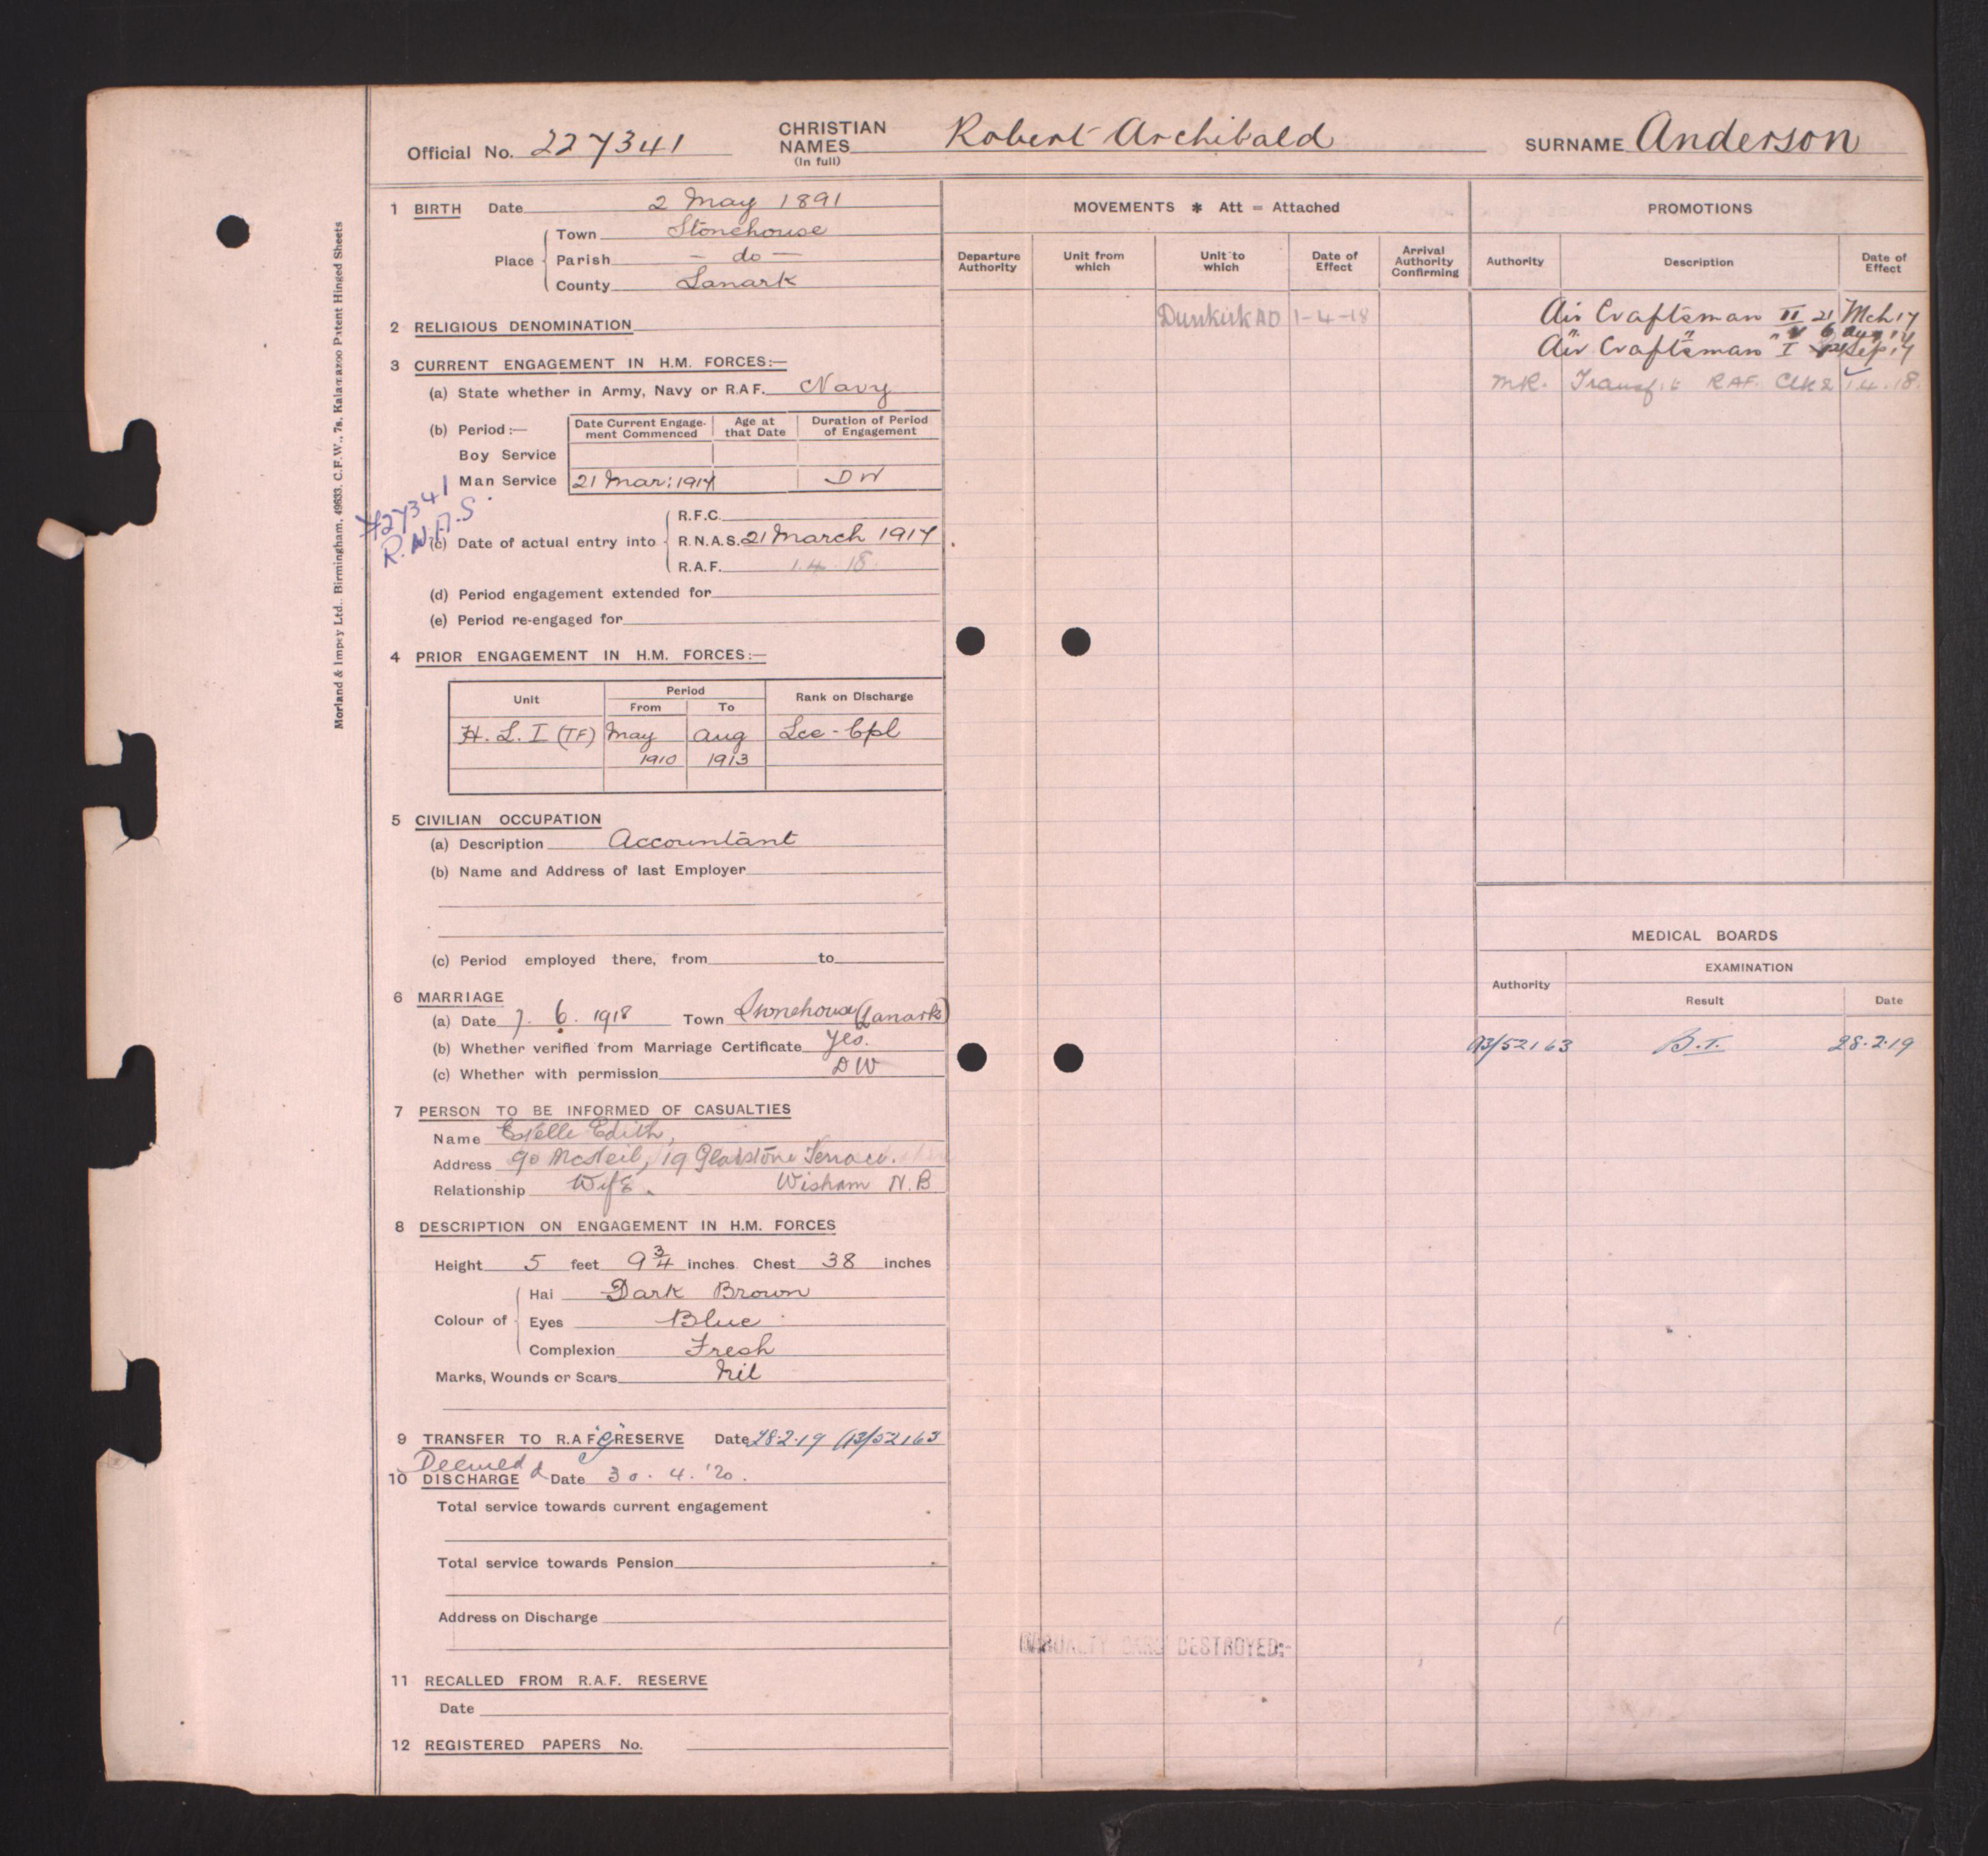 Official No. 227341 CHRISTIAN NAMES (In full) Robert Archibald SURNAME Anderson
1 BIRTH Date 2 May 1891
Place Town Stonehouse
Parish - do -
County Lanark
2 RELIGIOUS DENOMINATION
3 CURRENT ENGAGEMENT IN H.M. FORCES:—
(a) State whether in Army, Navy or R.A.F. Navy
(b) Period:— Date Current Engagement Commenced Age at that Date Duration of Period of Engagement
Boy Service
Man Service 21 Mar: 1917 DW
F27341
R.N.A.S.
(c) Date of actual entry into R.F.C.
R.N.A.S. 21 March 1917
R.A.F. 1.4.18
(d) Period engagement extended for
(e) Period re-engaged for
4 PRIOR ENGAGEMENT IN H.M. FORCES:—
Unit Period From To Rank on Discharge
H.L.I (TF) May 1910 Aug 1913 Lce-Cpl
5 CIVILIAN OCCUPATION
(a) Description Accountant
(b) Name and Address of last Employer
(c) Period employed there, from to
6 MARRIAGE
(a) Date 7. 6. 1918 Town Stonehouse (Lanark)
(b) Whether verified from Marriage Certificate Yes.
(c) Whether with permission DW
7 PERSON TO BE INFORMED OF CASUALTIES
Name Estelle Edith,
Address c/o McNeil, 19 Gladstone Terrace.
Relationship Wife. Wisham N.B
8 DESCRIPTION ON ENGAGEMENT IN H.M. FORCES
Height 5 feet 9 3/4 inches Chest 38 inches
Colour of Hai Dark Brown
Eyes Blue
Complexion Fresh
Marks, Wounds or Scars Nil
9 TRANSFER TO R.A.F. "G" RESERVE Date 28.2.19 A3/52163
Deemed
10 DISCHARGE d Date 30. 4. '20.
Total service towards current engagement
Total service towards Pension
Address on Discharge
11 RECALLED FROM R.A.F. RESERVE
Date
12 REGISTERED PAPERS No.
MOVEMENTS * Att = Attached
Departure Authority Unit from which Unit to which Date of Effect Arrival Authority Confirming
Dunkirk AD 1-4-18
CASUALTY CARD DESTROYED:-
PROMOTIONS
Authority Description Date of Effect
Air Craftsman II 21 Mch 17
" " " 6 Aug 17
Air Craftsman I Sep 17
MR. Transf. to RAF. Clk 2 1.4.18.
MEDICAL BOARDS
EXAMINATION
Authority Result Date
A3/52163 B.I. 28.2.19
Morland & Impey Ltd., Birmingham, 49633, C.F.W., 7s, Kalamazoo Patent Hinged Sheets